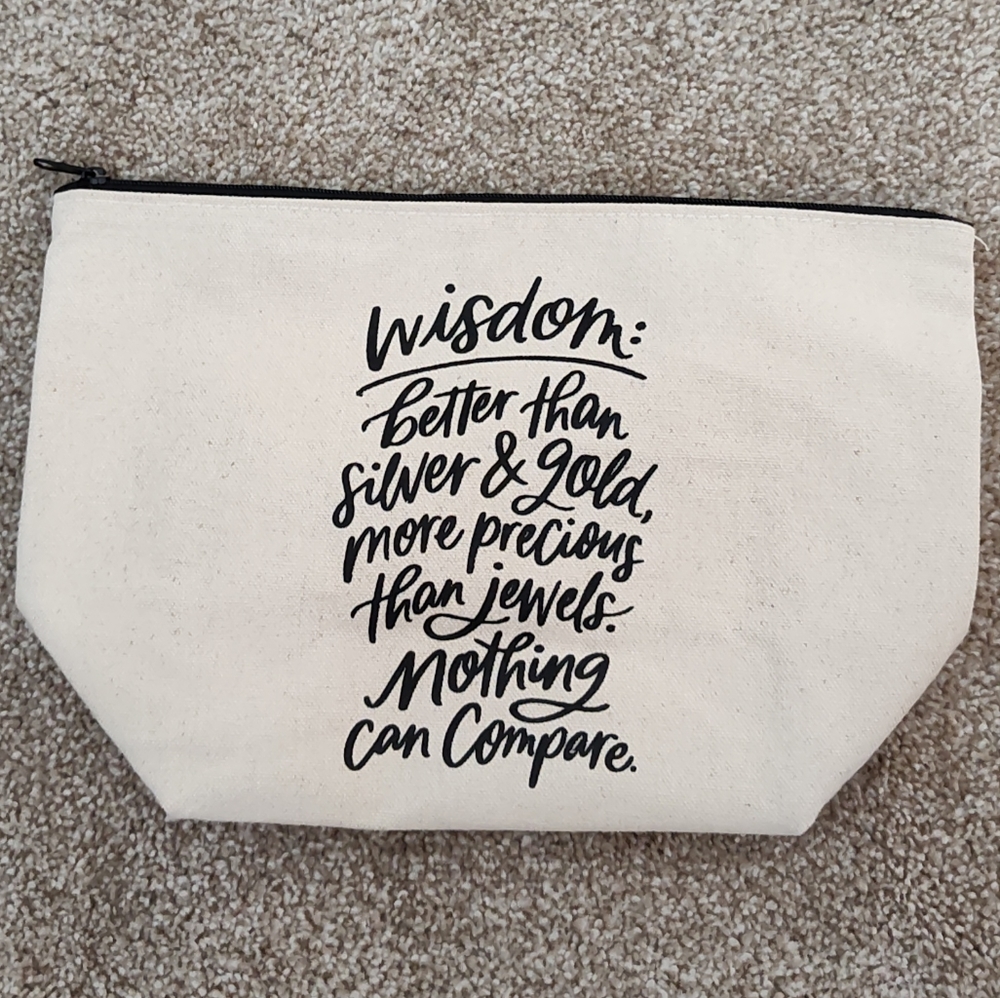 wisdom:
better than
silver & gold,
more precious
than jewels.
Nothing
can Compare.